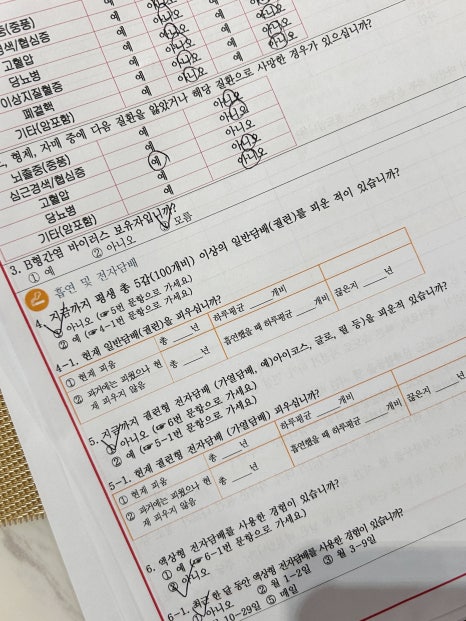 중(중풍) 예 아니오 예 아니오
경색/협심증 예 아니오 예 아니오
고혈압 예 아니오 예 아니오
당뇨병 예 아니오 예 아니오
이상지질혈증 예 아니오 예 아니오
폐결핵 예 아니오
기타(암포함) 예 아니오
형제, 자매 중에 다음 질환을 앓았거나 해당 질환으로 사망한 경우가 있으십니까?
뇌졸중(중풍) 예 아니오
심근경색/협심증 예 아니오
고혈압 예 아니오
당뇨병 예 아니오
기타(암포함) 예 아니오
3. B형간염 바이러스 보유자입니까?
① 예 ② 아니오 ③ 모름
흡연 및 전자담배
4. 지금까지 평생 총 5갑(100개비) 이상의 일반담배(궐련)를 피운 적이 있습니까?
① 아니오 (☞ 5번 문항으로 가세요)
② 예 (☞ 4-1번 문항으로 가세요)
4-1. 현재 일반담배(궐련)을 피우십니까?
① 현재 피움 총 ____년 하루평균 ____개비
② 과거에는 피웠으나 현재 피우지 않음 총 ____년 흡연했을 때 하루평균 ____개비 끊은지 ____년
5. 지금까지 궐련형 전자담배 (가열담배, 예)아이코스, 글로, 릴 등)을 피운적 있습니까?
① 아니오 (☞ 6번 문항으로 가세요)
② 예 (☞ 5-1번 문항으로 가세요)
5-1. 현재 궐련형 전자담배 (가열담배) 피우십니까?
① 현재 피움 총 ____년 하루평균 ____개비
② 과거에는 피웠으나 현재 피우지 않음 총 ____년 흡연했을 때 하루평균 ____개비 끊은지 ____년
6. 액상형 전자담배를 사용한 경험이 있습니까?
① 예 (☞ 6-1번 문항으로 가세요)
② 아니오
6-1. 최근 한 달 동안 액상형 전자담배를 사용한 경험이 있습니까?
① 아니오 ② 월 1-2일 ③ 월 3-9일
월 10-29일 ⑤ 매일